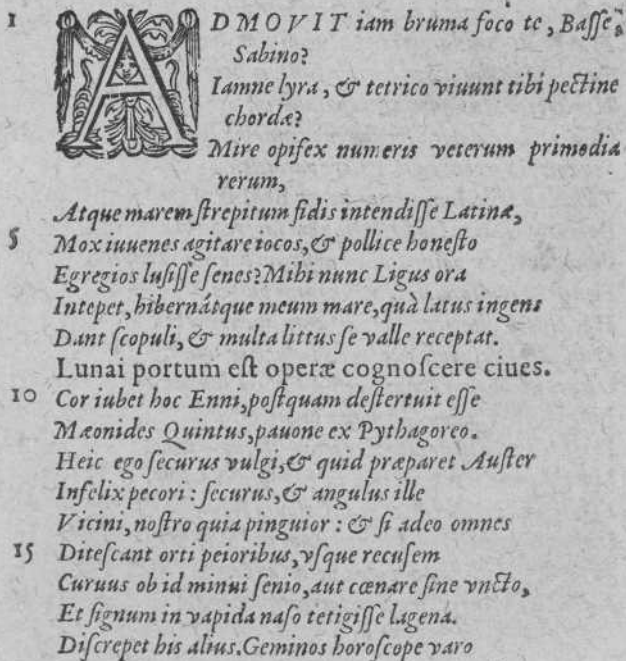 1 ADMOVIT iam bruma foco te, Basse,
Sabino?
Iamne lyra, & tetrico viuunt tibi pectine
chordæ?
Mire opifex numeris veterum primodia
rerum,
Atque marem ſtrepitum fidis intendiſſe Latinæ,
5 Mox iuuenes agitare iocos, & pollice honeſto
Egregios luſiſſe ſenes? Mihi nunc Ligus ora
Intepet, hibernátque meum mare, quà latus ingens
Dant ſcopuli, & multa littus ſe valle receptat.
Lunai portum eſt operæ cognoſcere ciues.
10 Cor iubet hoc Enni, poſtquam deſtertuit eſſe
Mæonides Quintus, pauone ex Pythagoreo.
Heic ego ſecurus vulgi, & quid præparet Auſter
Infelix pecori: ſecurus, & angulus ille
Vicini, noſtro quia pinguior: & ſi adeo omnes
15 Diteſcant orti peioribus, vſque recuſem
Curuus ob id minui ſenio, aut cœnare ſine vncto,
Et ſignum in vapida naſo tetigiſſe lagena.
Diſcrepet his alius. Geminos horoſcope varo